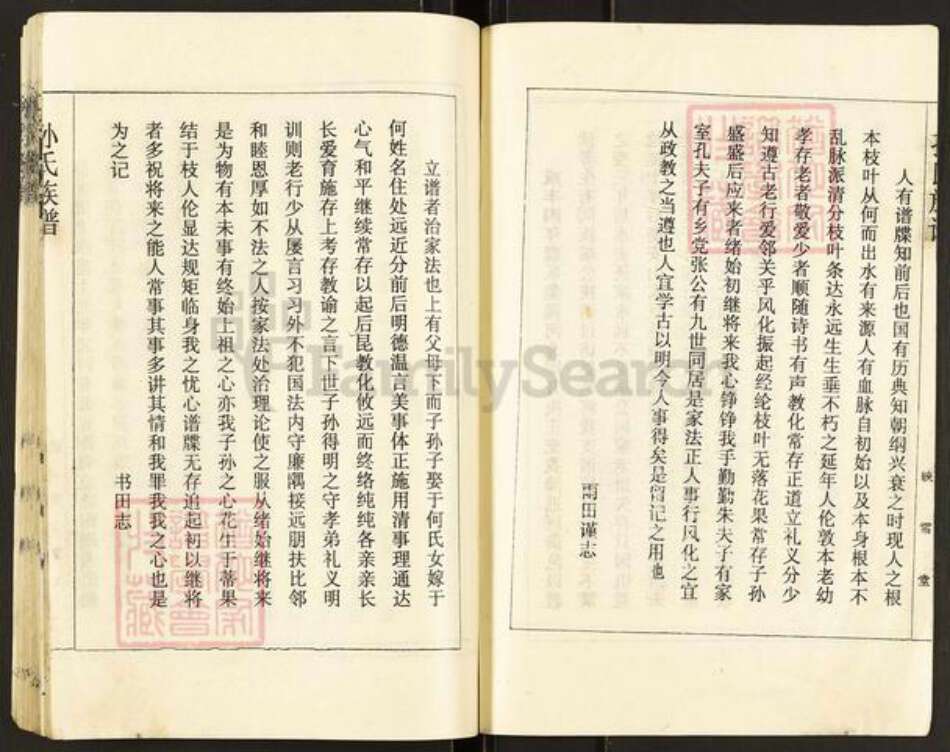 人有谱牒知前后也国有历典知朝纲兴衰之时现人之根
本枝叶从何而出水有来源人有血脉自初始以及本身根本不
乱脉派清分枝叶条达永远生生垂不朽之延年人伦敦本老幼
孝存老者敬爱少者顺随诗书有声教化常存正道立礼义分少
知遵古老行爱邻关乎风化振起经纶枝叶无落花果常存子孙
盛盛后应来者绪始初继将来我心铮铮我手勤勤朱夫子有家
室孔夫子有乡党张公有九世同居是家法正人事行风化之宜
从政教之当遵也人宜学古以明今人事得矣是留记之用也
雨田谨志
映雪堂
立谱者治家法也上有父母下而子孙子娶于何氏女嫁于
何姓名住处远近分前后明德温言美事体正施用清事理通达
心气和平继续常存以起后昆教化攸远而终络纯纯各亲亲长
长爱育施存上考存教谕之言下世子孙得明之守孝弟礼义明
训则老行少从屡言习习外不犯国法内守廉隅接远朋扶比邻
和睦恩厚如不法之人按家法处治理论使之服从绪始继将来
是为物有本末事有终始上祖之心亦我子孙之心花生于蒂果
结于枝人伦显达规矩临身我之忧心谱牒无存追起初以继将
者多祝将来之能人常事其事多讲其情和我罪我我之心也是
为之记
书田志
孙氏族谱
FamilySearch